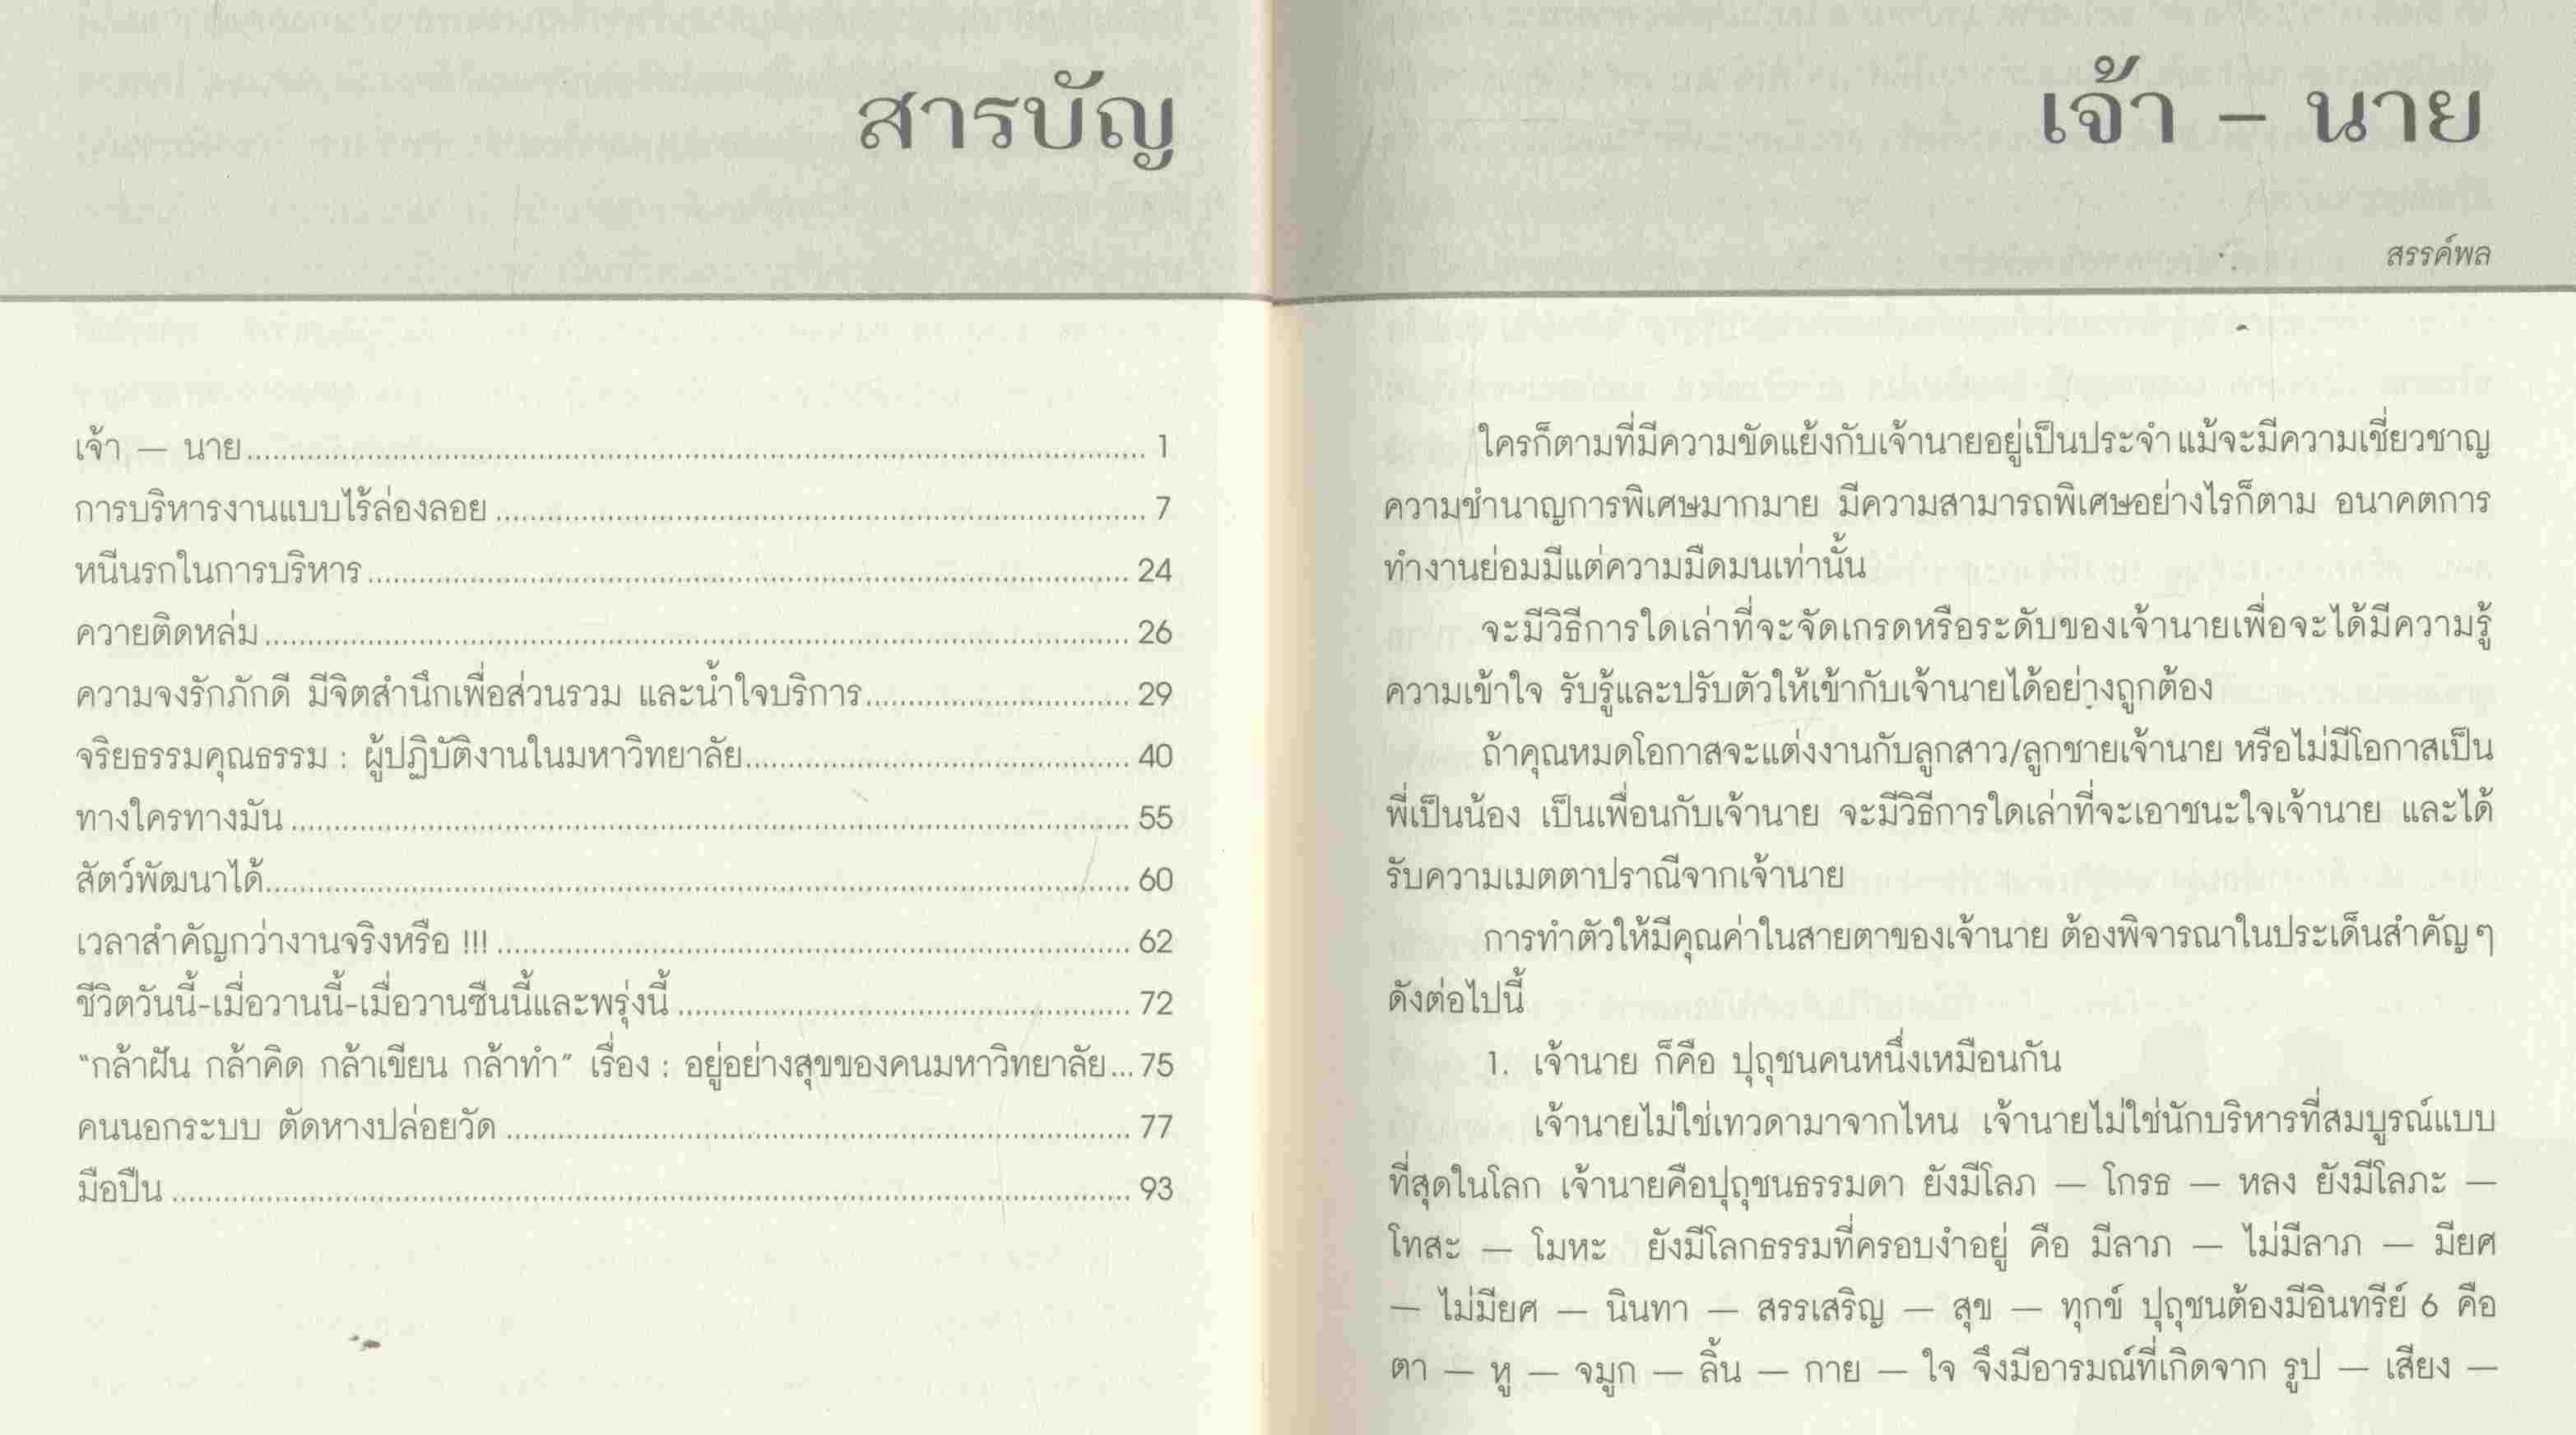 สารบัญ
เจ้า – นาย.......... 1
การบริหารงานแบบไร้ล่องลอย.......... 7
หนีนรกในการบริหาร.......... 24
ควายติดหล่ม.......... 26
ความจงรักภักดี มีจิตสำนึกเพื่อส่วนรวม และน้ำใจบริการ.......... 29
จริยธรรมคุณธรรม : ผู้ปฏิบัติงานในมหาวิทยาลัย.......... 40
ทางใครทางมัน.......... 55
สัตว์พัฒนาได้.......... 60
เวลาสำคัญกว่างานจริงหรือ !!!.......... 62
ชีวิตวันนี้-เมื่อวานนี้-เมื่อวานซืนนี้และพรุ่งนี้.......... 72
"กล้าฝัน กล้าคิด กล้าเขียน กล้าทำ" เรื่อง : อยู่อย่างสุขของคนมหาวิทยาลัย...75
คนนอกระบบ ตัดหางปล่อยวัด.......... 77
มือปืน.......... 93
เจ้า – นาย
สรรค์พล
ใครก็ตามที่มีความขัดแย้งกับเจ้านายอยู่เป็นประจำ แม้จะมีความเชี่ยวชาญ
ความชำนาญการพิเศษมากมาย มีความสามารถพิเศษอย่างไรก็ตาม อนาคตการ
ทำงานย่อมมีแต่ความมืดมนเท่านั้น
จะมีวิธีการใดเล่าที่จะจัดเกรดหรือระดับของเจ้านายเพื่อจะได้มีความรู้
ความเข้าใจ รับรู้และปรับตัวให้เข้ากับเจ้านายได้อย่างถูกต้อง
ถ้าคุณหมดโอกาสจะแต่งงานกับลูกสาว/ลูกชายเจ้านาย หรือไม่มีโอกาสเป็น
พี่เป็นน้อง เป็นเพื่อนกับเจ้านาย จะมีวิธีการใดเล่าที่จะเอาชนะใจเจ้านาย และได้
รับความเมตตาปราณีจากเจ้านาย
การทำตัวให้มีคุณค่าในสายตาของเจ้านาย ต้องพิจารณาในประเด็นสำคัญๆ
ดังต่อไปนี้
1. เจ้านาย ก็คือ ปุถุชนคนหนึ่งเหมือนกัน
เจ้านายไม่ใช่เทวดามาจากไหน เจ้านายไม่ใช่นักบริหารที่สมบูรณ์แบบ
ที่สุดในโลก เจ้านายคือปุถุชนธรรมดา ยังมีโลภ – โกรธ – หลง ยังมีโลภะ –
โทสะ – โมหะ ยังมีโลกธรรมที่ครอบงำอยู่ คือ มีลาภ – ไม่มีลาภ – มียศ
– ไม่มียศ – นินทา – สรรเสริญ – สุข – ทุกข์ ปุถุชนต้องมีอินทรีย์ 6 คือ
ตา – หู – จมูก – ลิ้น – กาย – ใจ จึงมีอารมณ์ที่เกิดจาก รูป – เสียง –